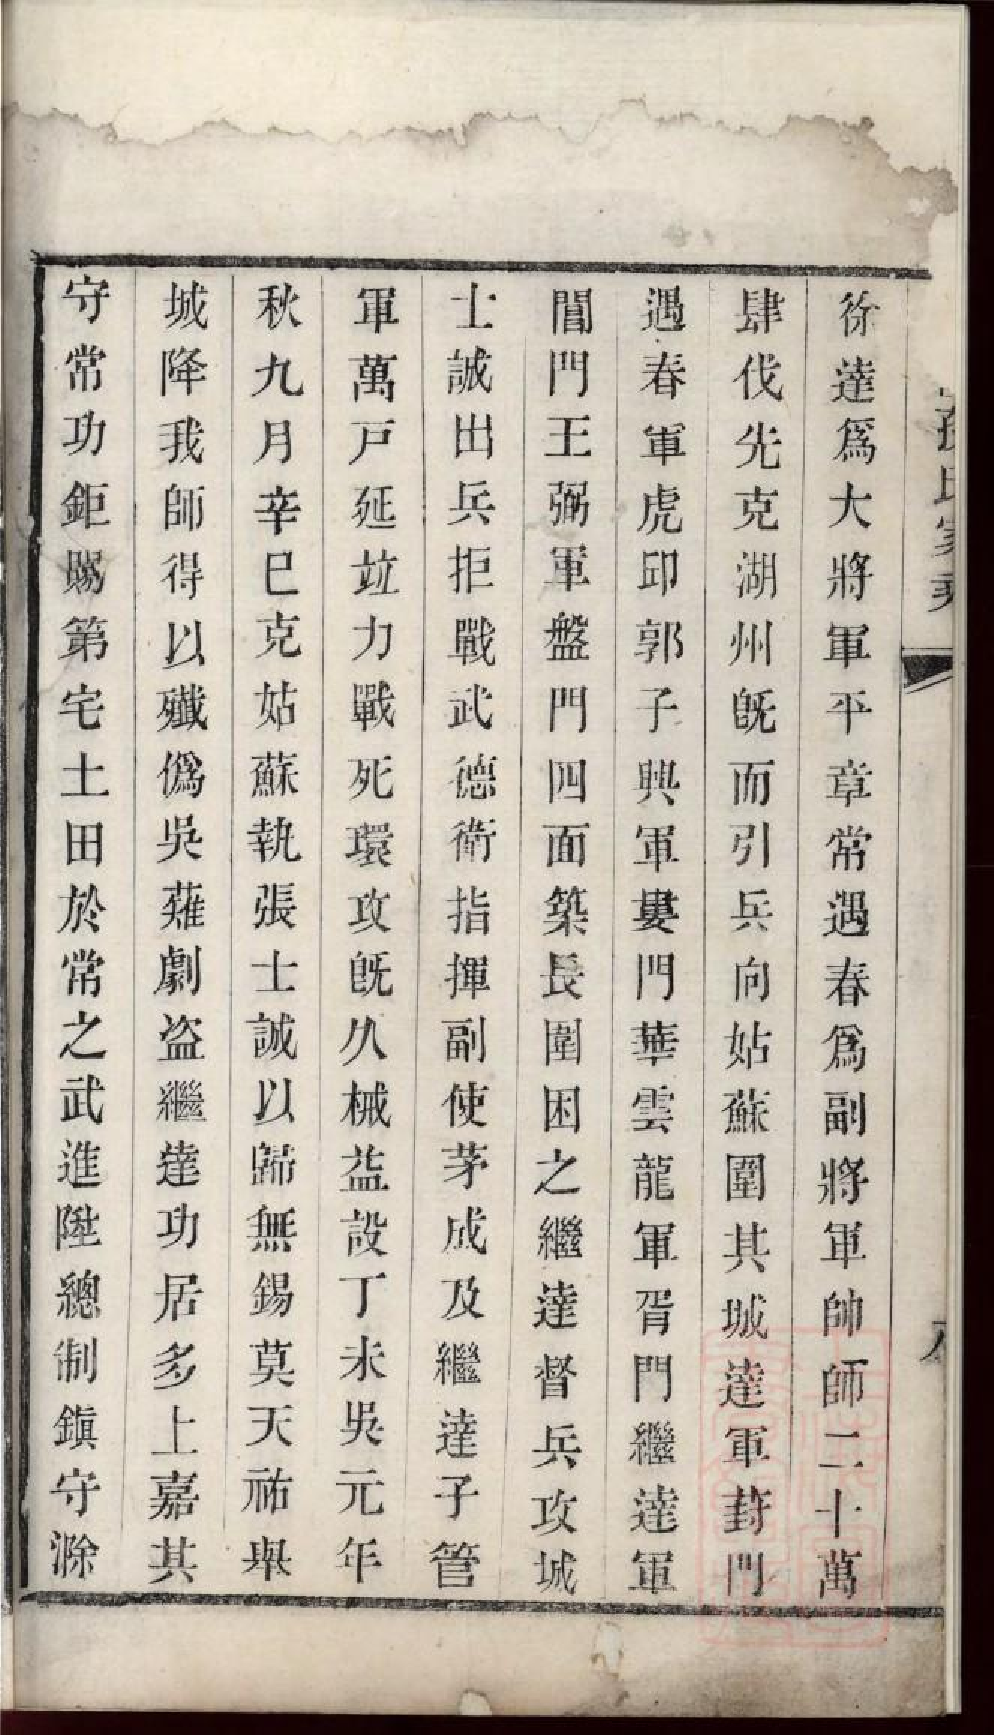 徐達爲大將軍平章常遇春爲副將軍帥師二十萬
肆伐先克湖州旣而引兵向姑蘇圍其城達軍葑門
遇春軍虎邱郭子興軍婁門華雲龍軍胥門繼達軍
閶門王弼軍盤門四面築長圍困之繼達督兵攻城
士誠出兵拒戰武德衛指揮副使茅成及繼達子管
軍萬戸延竝力戰死環攻旣久械益設丁未吳元年
秋九月辛巳克姑蘇執張士誠以歸無錫莫天祐舉
城降我師得以殲僞吳薙劇盜繼達功居多上嘉其
守常功鉅賜第宅土田於常之武進陞總制鎭守滁
孫氏家乘
八